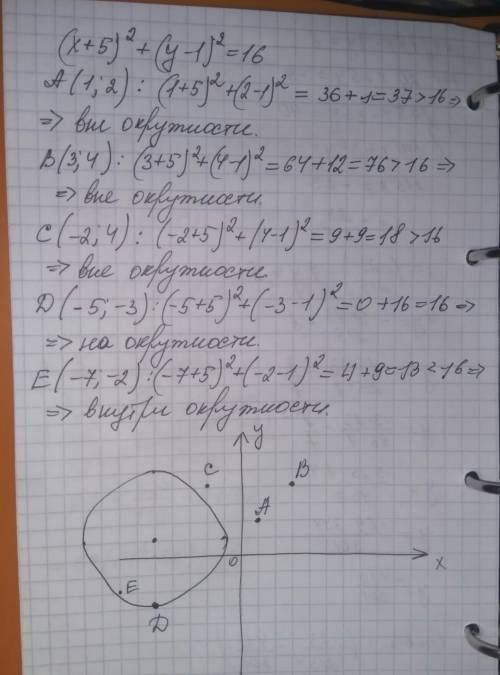 (x+5)²+(y-1)²=16
A(1;2): (1+5)²+(2-1)² = 36+1=37>16 =>
=> вне окружности.
B(3;4): (3+5)²+(4-1)²=64+12=76>16 =>
=> вне окружности.
C(-2;4): (-2+5)²+(4-1)²=9+9=18>16
=> вне окружности.
D(-5;-3):(-5+5)²+(-3-1)²=0+16=16 =>
=> на окружности.
E(-7;-2):(-7+5)²+(-2-1)²=4+9=13<16 =>
=> внутри окружности.
y
C
B
A
0
x
E
D